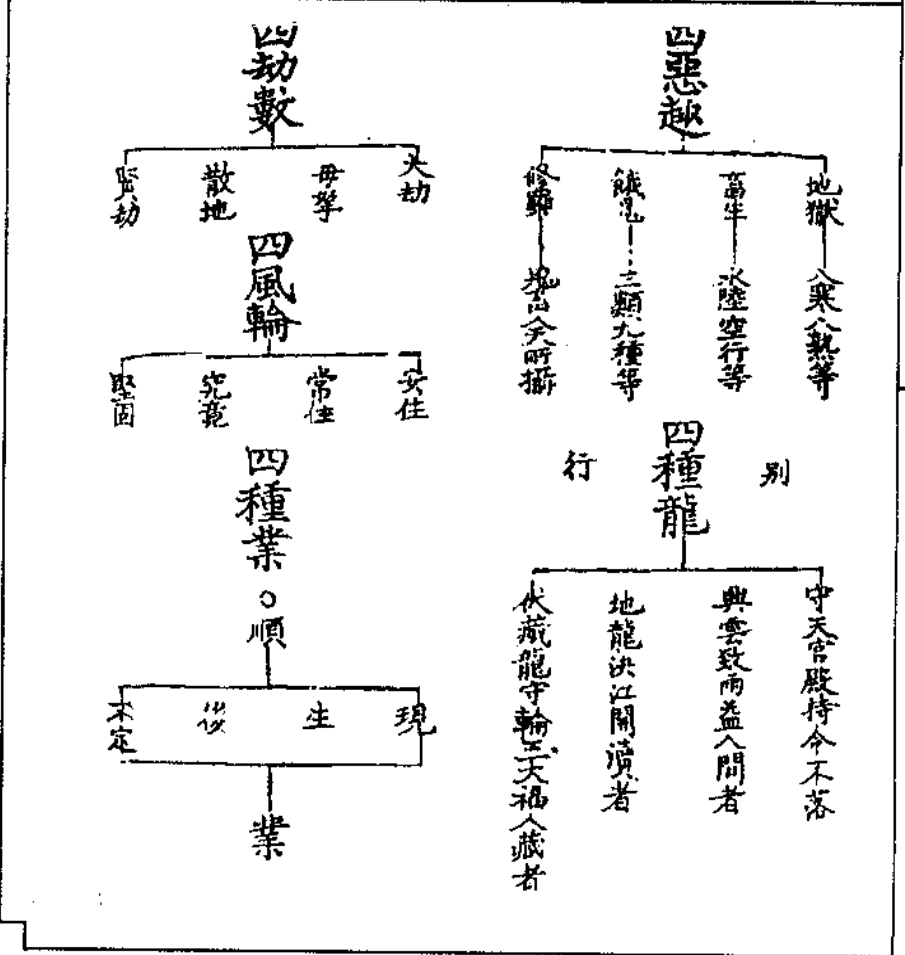 四惡趣
地獄 八寒八熱等
畜生 水陸空行等
餓鬼 三類九種等
修羅 鬼畜人天所攝
別行
四種龍
守天宮殿持令不落
興雲致雨益人間者
地龍決江開瀆者
伏藏龍守輪王大福人藏者
四劫數
大劫
散地
賢劫
四風輪
安住
常住
究竟
堅固
四種業○順
現
生
後
不定
業